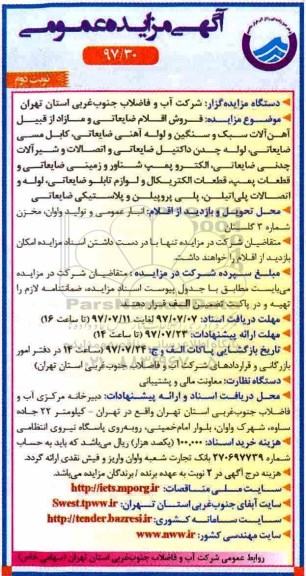 آگهی مزایده عمومی
۹۷/۳۰
نوبت دوم
دستگاه مزایده‌گزار: شرکت آب و فاضلاب جنوب‌غربی استان تهران
موضوع مزایده: فروش اقلام ضایعاتی و مازاد از قبیل
آهن‌آلات سبک و سنگین و لوله آهنی ضایعاتی، کابل مسی
ضایعاتی، لوله چدن داکتیل ضایعاتی و اتصالات و شیرآلات
چدنی ضایعاتی، الکترو پمپ شناور و زمینی ضایعاتی و
قطعات پمپ، قطعات الکتریکال و لوازم تابلو ضایعاتی، لوله و
اتصالات پلی‌اتیلن، پلی پروپیلن و پلاستیکی ضایعاتی
محل تحویل و بازدید از اقلام: انبار عمومی و تولید وان، مخزن
شماره ۳ گلستان
متقاضیان شرکت در مزایده تنها با در دست داشتن اسناد مزایده امکان
بازدید از اقلام را خواهند داشت.
مبلغ سپرده شرکت در مزایده: متقاضیان شرکت در مزایده
می‌بایست مطابق با جدول پیوست اسناد مزایده، ضمانتنامه لازم را
تهیه و در پاکت تضمین الف قرار دهند
مهلت دریافت اسناد: ۹۷/۰۷/۰۷ لغایت ۹۷/۰۷/۱۱ (تا ساعت ۱۶)
مهلت ارائه پیشنهادات: ۹۷/۰۷/۲۳ (تا ساعت ۱۴)
تاریخ بازگشایی پاکات الف و ج: ۹۷/۰۷/۲۴ (ساعت ۱۴ در دفتر امور
بازرگانی و قراردادهای شرکت آب و فاضلاب جنوب غربی استان تهران)
دستگاه نظارت: معاونت مالی و پشتیبانی
محل دریافت اسناد و ارائه پیشنهادات: دبیرخانه مرکزی آب و
فاضلاب جنوب‌غربی استان تهران واقع در تهران - کیلومتر ۲۲ جاده
ساوه، شهرک واوان، بلوار امام‌خمینی، روبه‌روی پاسگاه نیروی انتظامی
هزینه خرید اسناد: ۱۰۰،۰۰۰ (یکصد هزار) ریال می‌باشد که باید به حساب
شماره ۲۷۰۶۹۷۷۳۹ بانک تجارت شعبه واوان واریز و فیش نقدی ارائه گردد.
هزینه درج آگهی در ۲ نوبت به عهده برنده / برندگان مزایده می‌باشد.
سایت ملی مناقصات: http://iets.mporg.ir
سایت آبفای جنوب‌غربی استان تهران: Swest.tpww.ir
سایت سامانه کشوری: http://tender.bazresi.ir
سایت مهندسی کشور: www.nww.ir
روابط عمومی شرکت آب و فاضلاب جنوب‌غربی استان تهران (سهامی خاص)